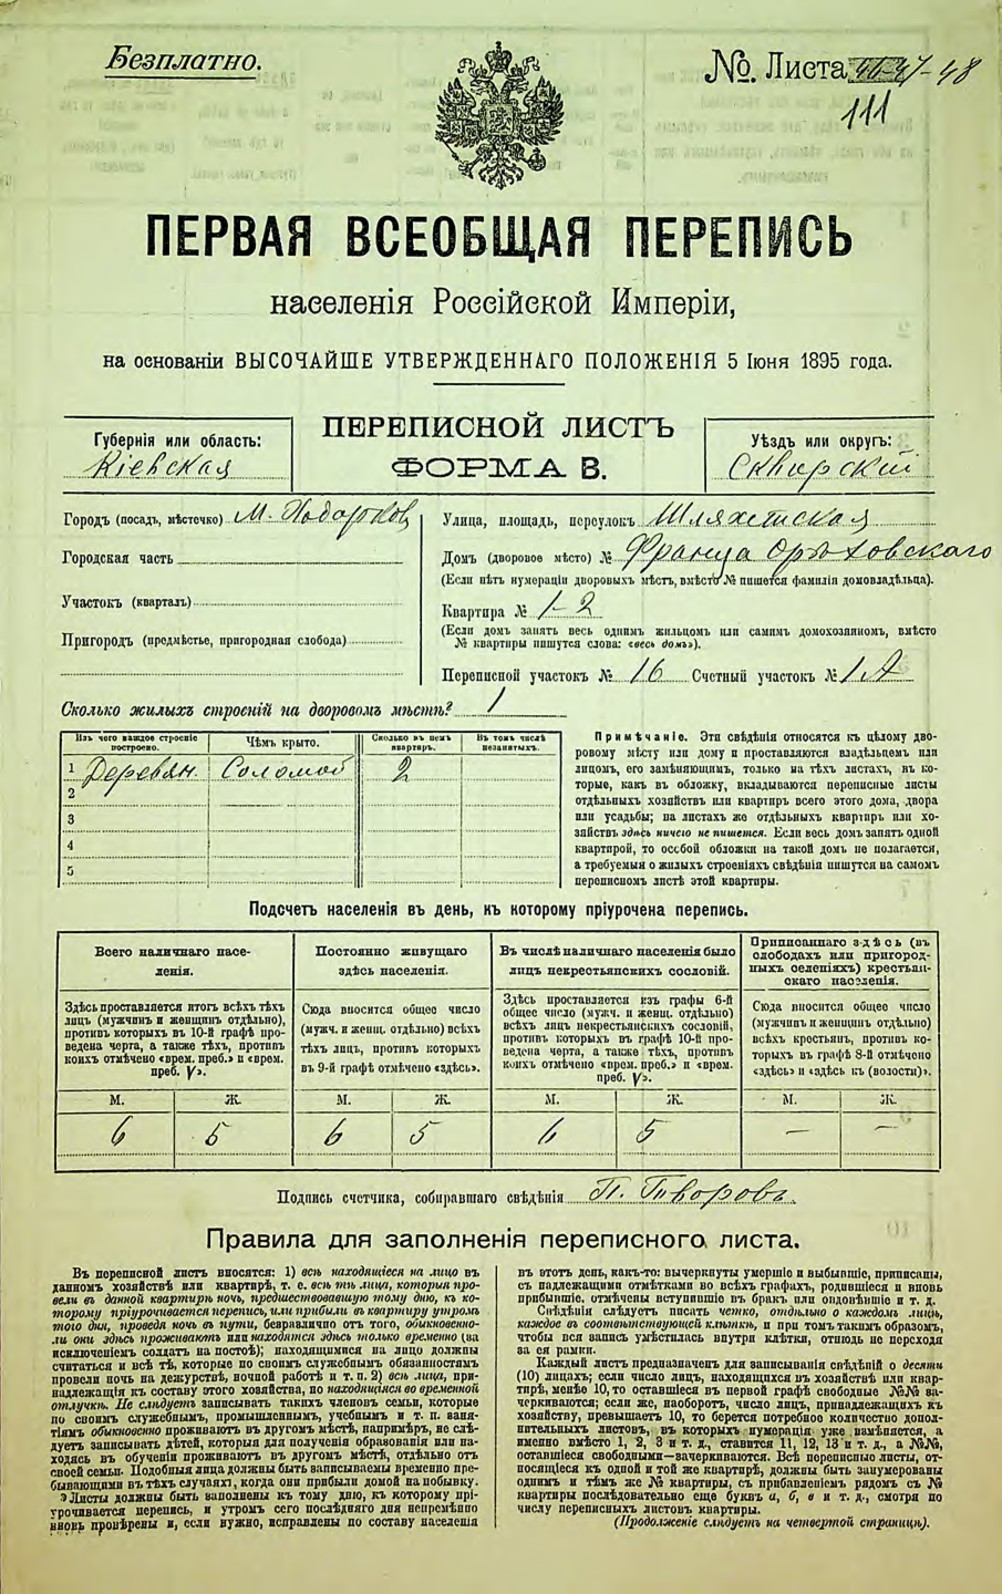 Безплатно.
№. Листа 47-48
111
ПЕРВАЯ ВСЕОБЩАЯ ПЕРЕПИСЬ
населенія Россійской Имперіи,
на основаніи ВЫСОЧАЙШЕ УТВЕРЖДЕННАГО ПОЛОЖЕНІЯ 5 Іюня 1895 года.
Губернія или область:
Кіевская
ПЕРЕПИСНОЙ ЛИСТЪ
ФОРМА В.
Уѣздъ или округъ:
Сквирскій
Городъ (посадъ, мѣстечко) М.
Городская часть
Участокъ (кварталъ)
Пригородъ (предмѣстье, пригородная слобода)
Улица, площадь, переулокъ Шляхетская
Домъ (дворовое мѣсто) № Франца
(Если нѣтъ нумераціи дворовыхъ мѣстъ, вмѣсто № пишется фамилія домовладѣльца).
Квартира № 1-2
(Если домъ занятъ весь однимъ жильцомъ или самимъ домохозяиномъ, вмѣсто
№ квартиры пишутся слова: «весь домъ»).
Переписной участокъ № 16 Счетный участокъ № 1 А
Сколько жилыхъ строеній на дворовомъ мѣстѣ? 1
Изъ чего каждое строеніе построено.
Чѣмъ крыто.
Сколько въ немъ квартиръ.
Въ томъ числѣ незанятыхъ.
1 Деревян. Соломой 2
2
3
4
5
Примѣчаніе. Эти свѣдѣнія относятся къ цѣлому дво-
ровому мѣсту или дому и проставляются владѣльцемъ или
лицомъ, его замѣняющимъ, только на тѣхъ листахъ, въ ко-
торые, какъ въ обложку, вкладываются переписные листы
отдѣльныхъ хозяйствъ или квартиръ всего этого дома, двора
или усадьбы; на листахъ же отдѣльныхъ квартиръ или хо-
зяйствъ здѣсь ничего не пишется. Если весь домъ занятъ одной
квартирой, то особой обложки на такой домъ не полагается,
а требуемыя о жилыхъ строеніяхъ свѣдѣнія пишутся на самомъ
переписномъ листѣ этой квартиры.
Подсчетъ населенія въ день, къ которому пріурочена перепись.
Всего наличнаго насе-
ленія.
Здѣсь проставляется итогъ всѣхъ тѣхъ
лицъ (мужчинъ и женщинъ отдѣльно),
противъ которыхъ въ 10-й графѣ про-
ведена черта, а также тѣхъ, противъ
коихъ отмѣчено «врем. преб.» и «врем.
преб. V».
Постоянно живущаго
здѣсь населенія.
Сюда вносится общее число
(мужч. и женщ. отдѣльно) всѣхъ
тѣхъ лицъ, противъ которыхъ
въ 9-й графѣ отмѣчено «здѣсь».
Въ числѣ наличнаго населенія было
лицъ некрестьянскихъ сословій.
Здѣсь проставляется изъ графы 6-й
общее число (мужч. и женщ. отдѣльно)
всѣхъ лицъ некрестьянскихъ сословій,
противъ которыхъ въ графѣ 10-й про-
ведена черта, а также тѣхъ, противъ
коихъ отмѣчено «врем. преб.» и «врем.
преб. V».
Приписаннаго здѣсь (въ
слободахъ или пригород-
ныхъ селеніяхъ) крестьян-
скаго населенія.
Сюда вносится общее число
(мужчинъ и женщинъ отдѣльно)
всѣхъ крестьянъ, противъ ко-
торыхъ въ графѣ 8-й отмѣчено
«здѣсь» и «здѣсь къ (волости)».
М. Ж. М. Ж. М. Ж. М. Ж.
6 5 6 5 6 5 — —
Подпись счетчика, собиравшаго свѣдѣнія П. Творовъ.
Правила для заполненія переписного листа.
Въ переписной листъ вносятся: 1) всѣ находящіеся на лицо въ
данномъ хозяйствѣ или квартирѣ, т. е. всѣ тѣ лица, которыя про-
вели въ данной квартирѣ ночь, предшествовавшую тому дню, къ ко-
торому пріурочивается перепись, или прибыли въ квартиру утромъ
того дня, проведя ночь въ пути, безразлично отъ того, обыкновенно-
ли они здѣсь проживаютъ или находятся здѣсь только временно (за
исключеніемъ солдатъ на постоѣ); находящимися на лицо должны
считаться и всѣ тѣ, которые по своимъ служебнымъ обязанностямъ
провели ночь на дежурствѣ, ночной работѣ и т. п. 2) всѣ лица, при-
надлежащія къ составу этого хозяйства, но находящіяся во временной
отлучкѣ. Не слѣдуетъ записывать такихъ членовъ семьи, которые
по своимъ служебнымъ, промышленнымъ, учебнымъ и т. п. заня-
тіямъ обыкновенно проживаютъ въ другомъ мѣстѣ, напримѣръ, не слѣ-
дуетъ записывать дѣтей, которыя для полученія образованія или на-
ходясь въ обученіи проживаютъ въ другомъ мѣстѣ, отдѣльно отъ
своей семьи. Подобныя лица должны быть записываемы временно пре-
бывающими въ тѣхъ случаяхъ, когда они прибыли домой на побывку.
Листы должны быть заполнены къ тому дню, къ которому прі-
урочивается перепись, и утромъ сего послѣдняго дня непремѣнно
вновь провѣрены и, если нужно, исправлены по составу населенія
въ этотъ день, какъ-то: вычеркнуты умершіе и выбывшіе, приписаны,
съ надлежащими отмѣтками во всѣхъ графахъ, родившіеся и вновь
прибывшіе, отмѣчены вступившіе въ бракъ или овдовѣвшіе и т. д.
Свѣдѣнія слѣдуетъ писать четко, отдѣльно о каждомъ лицѣ,
каждое въ соотвѣтствующей клѣткѣ, и при томъ такимъ образомъ,
чтобы вся запись умѣстилась внутри клѣтки, отнюдь не переходя
за ея рамки.
Каждый листъ предназначенъ для записыванія свѣдѣній о десяти
(10) лицахъ; если число лицъ, находящихся въ хозяйствѣ или квар-
тирѣ, менѣе 10, то оставшіеся въ первой графѣ свободные №№ за-
черкиваются; если же, наоборотъ, число лицъ, принадлежащихъ къ
хозяйству, превышаетъ 10, то берется потребное количество допол-
нительныхъ листовъ, въ которыхъ нумерація уже измѣняется, а
именно вмѣсто 1, 2, 3 и т. д., ставится 11, 12, 13 и т. д., а №№,
оставшіеся свободными—зачеркиваются. Всѣ переписные листы, от-
носящіеся къ одной и той же квартирѣ, должны быть занумерованы
однимъ и тѣмъ же № квартиры, съ прибавленіемъ рядомъ съ №
квартиры послѣдовательно еще буквъ а, б, в и т. д., смотря по
числу переписныхъ листовъ квартиры.
(Продолженіе слѣдуетъ на четвертой страницѣ).